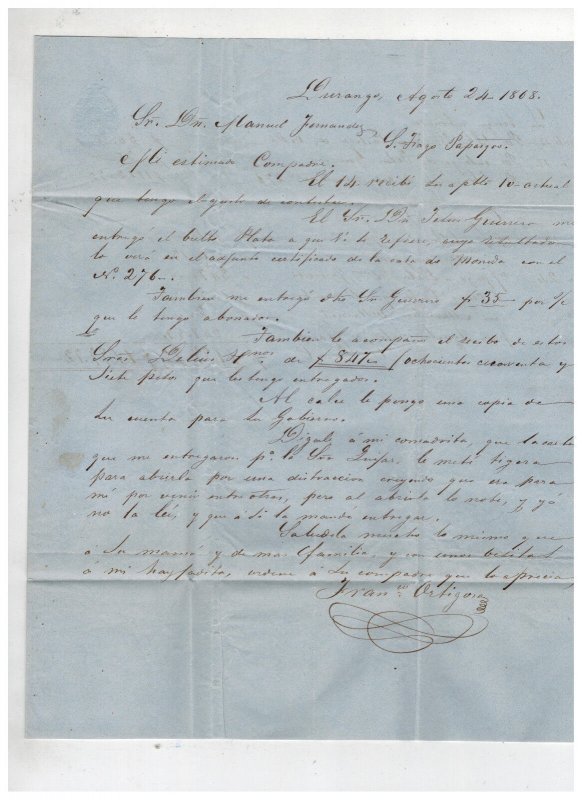 Durango, Agosto 24 1868.
Sr. Dn. Manuel Fernandez
S. Tiago Papasqro.
Mi estimado Compadre.
El 14 recibi su aptble 10 actual
que tengo el gusto de contestar.
El Sr. Dn. Guerrero me
entregó el bulto Plata a que V. se refiere, cuyo resultado
lo verá en el adjunto certificado de la casa de Moneda con el
N. 276-.
Tambien me entregó dho Sr Guerrero $ 35 por S/c
que le tengo abonados.
Tambien le acompaño el recibo de estos
Sres. hnos de $ 847 (ochocientos cuarenta y
Siete pesos que les tengo entregados.
Al calce le pongo una copia de
su cuenta para su Gobierno.
Digale á mi comadrita, que la carta
que me entregaron pa. la Sra. le metí tigera
para abrirla por una distraccion creyendo que era para
mi por venir entre otras, pero al abrirla lo noté, y yó
no la leí, y que así la mandé entregar.
Saludela mucho lo mismo que
a Su mamá y de mas familia, y con unos besitos
á mi hayjadita, ordene á Su compadre que lo aprecia,
Franco. Ortigosa